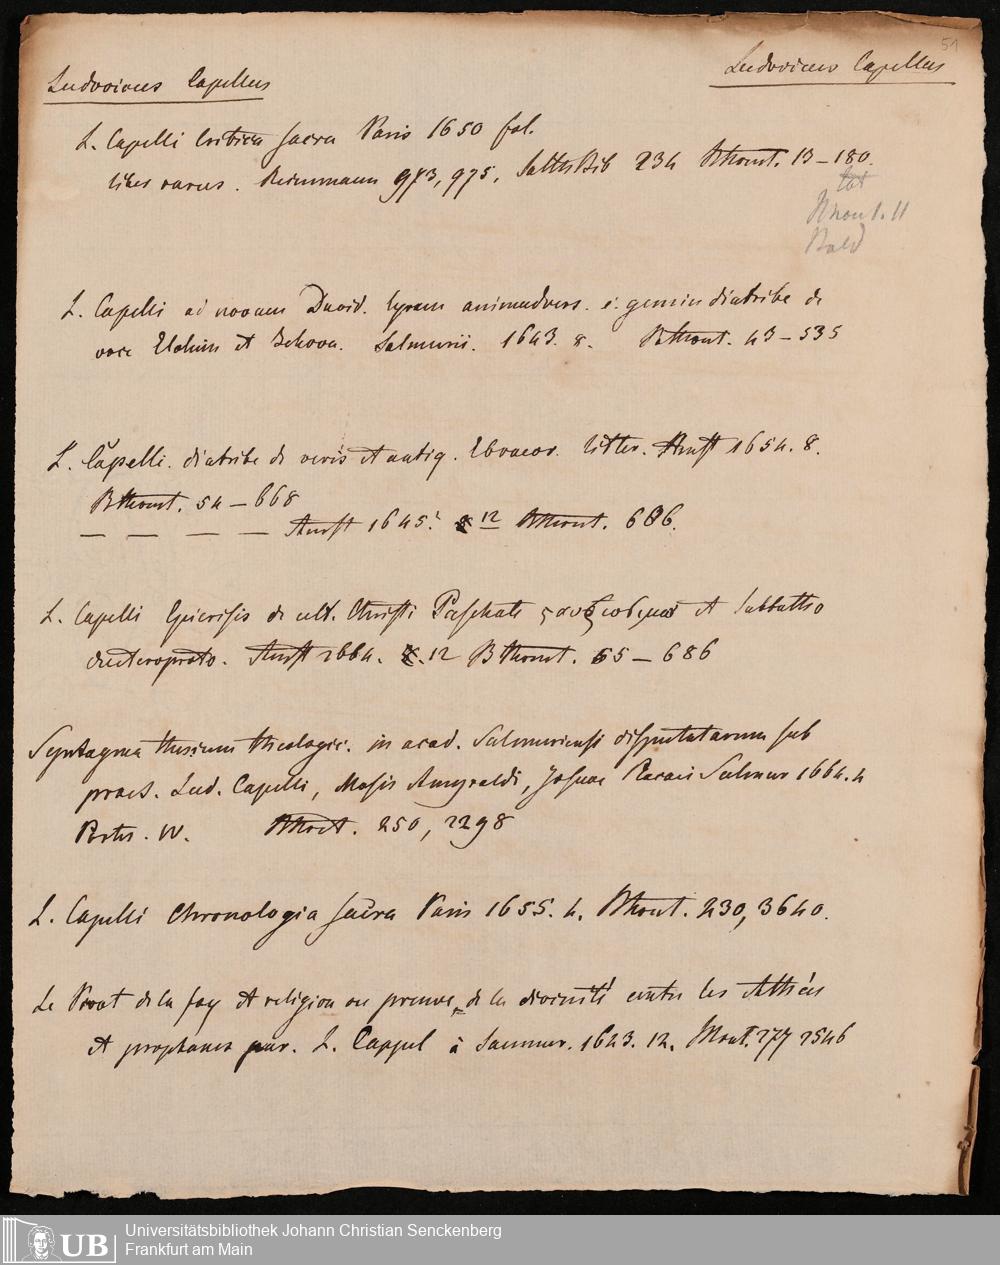 51
Ludovicus Capellus
Ludovicus Capellus
L. Capelli Critica sacra Paris 1650 fol.
liber rarus. Reimmann 973, 975. Bib 234 13–180.
11
L. Capelli ad novam David. lyram animadvers. c. gemin diatribe de
voce Elohim et Jehova. Salmurii. 1643. 8. 43–535
L. Capelli. diatribe de veris et antiq. Ebraeor. litter. Amst 1654. 8.
54–668
— — — — Amst 1645. 12 686.
L. Capelli Epicrisis de ult. Christi Paschate et Sabbatho
deuteroproto. Amst 12 65–686
Syntagma thesium theologic. in acad. Salmuriensi disputatarum sub
praes. Lud. Capelli, Mosis Amyraldi, Josuae Placaei Salmur 1664. 4
IV. 250, 2298
L. Capelli Chronologia sacra Paris 1655. 4. 230, 3640.
Le Pivot de la foy et religion ou preuve de la divinité contre les Athées
et prophanes par. L. Cappel à Saumur. 1643. 12. 277 2546
Universitätsbibliothek Johann Christian Senckenberg
Frankfurt am Main
UB